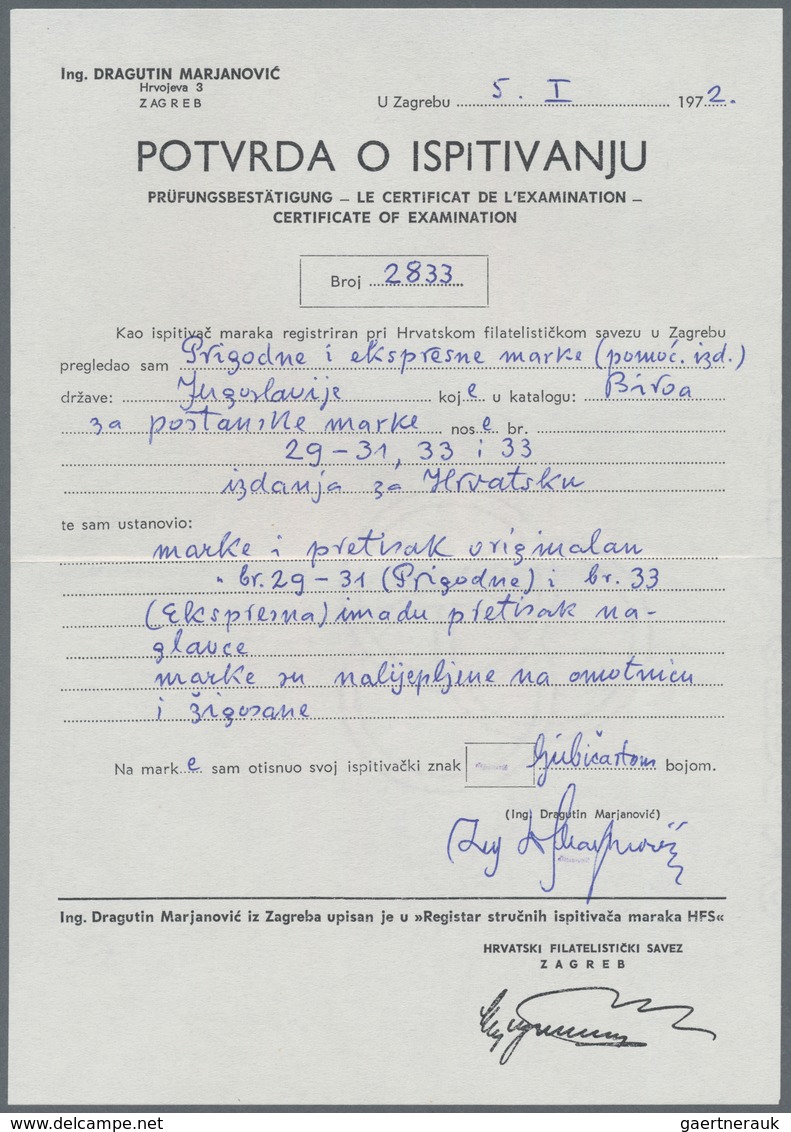 Ing. DRAGUTIN MARJANOVIĆ
Hrvojeva 3
ZAGREB
U Zagrebu 5. I 1972.
POTVRDA O ISPITIVANJU
PRÜFUNGSBESTÄTIGUNG – LE CERTIFICAT DE L'EXAMINATION –
CERTIFICATE OF EXAMINATION
Broj 2833
Kao ispitivač maraka registriran pri Hrvatskom filatelističkom savezu u Zagrebu
pregledao sam Prigodne i ekspresne marke (pomoć. izd.)
države: Jugoslavije koje u katalogu: Biroa
za poštanske marke nose br.
29–31, 33 i 33
izdanja za Hrvatsku
te sam ustanovio:
marke i pretisak originalan
br. 29–31 (Prigodne) i br. 33
(Ekspresna) imadu pretisak na-
glavce
marke su nalijepljene na omotnicu
i žigosane
Na marke sam otisnuo svoj ispitivački znak ljubičastom bojom.
(Ing. Dragutin Marjanović)
Ing. Dragutin Marjanović iz Zagreba upisan je u »Registar stručnih ispitivača maraka HFS«
HRVATSKI FILATELISTIČKI SAVEZ
ZAGREB
www.delcampe.net
gaertnerauk